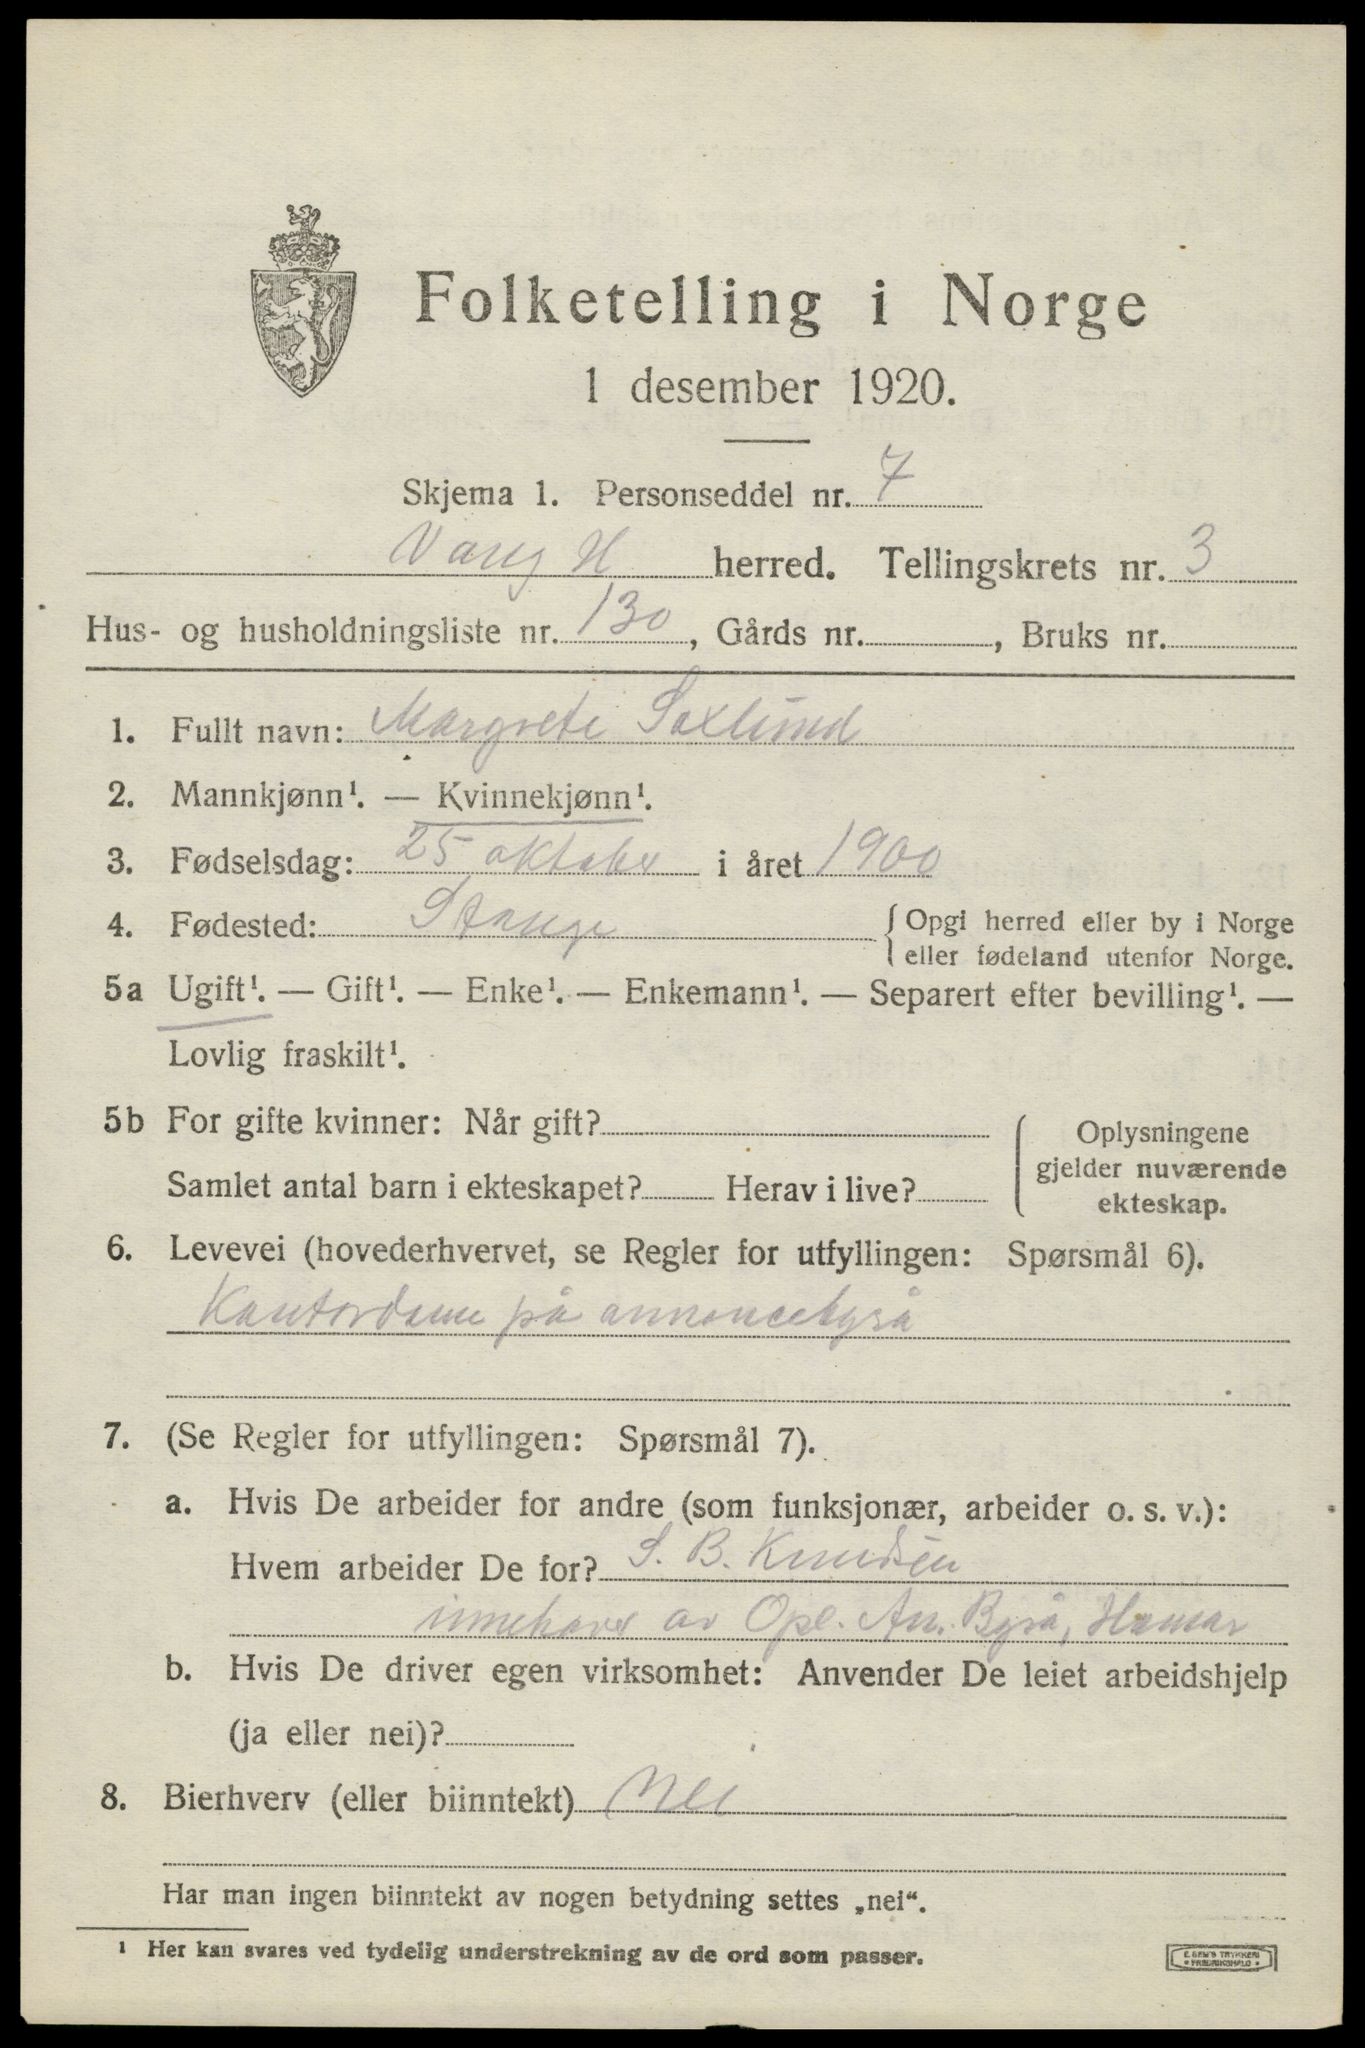 Folketelling i Norge
1 desember 1920.
Skjema 1. Personseddel nr. 7
Vang H herred. Tellingskrets nr. 3
Hus- og husholdningsliste nr. 130, Gårds nr. , Bruks nr.
1. Fullt navn: Margrete Saxlund
2. Mannkjønn¹. — Kvinnekjønn¹.
3. Fødselsdag: 25 oktober i året 1900
4. Fødested: Stange { Opgi herred eller by i Norge
eller fødeland utenfor Norge.
5a Ugift¹. — Gift¹. — Enke¹. — Enkemann¹. — Separert efter bevilling¹. —
Lovlig fraskilt¹.
5b For gifte kvinner: Når gift?
Samlet antal barn i ekteskapet? Herav i live?
Oplysningene
gjelder nuværende
ekteskap.
6. Levevei (hovederhvervet, se Regler for utfyllingen: Spørsmål 6).
Kontordame på annoncebyrå
7. (Se Regler for utfyllingen: Spørsmål 7).
a. Hvis De arbeider for andre (som funksjonær, arbeider o. s. v.):
Hvem arbeider De for? S. B. Knudsen
innehaver av Opl. An. Byrå, Hamar
b. Hvis De driver egen virksomhet: Anvender De leiet arbeidshjelp
(ja eller nei)?
8. Bierhverv (eller biinntekt) Nei
Har man ingen biinntekt av nogen betydning settes „nei“.
¹ Her kan svares ved tydelig understrekning av de ord som passer.
E. SEM'S TRYKKERI
FREDRIKSHALD